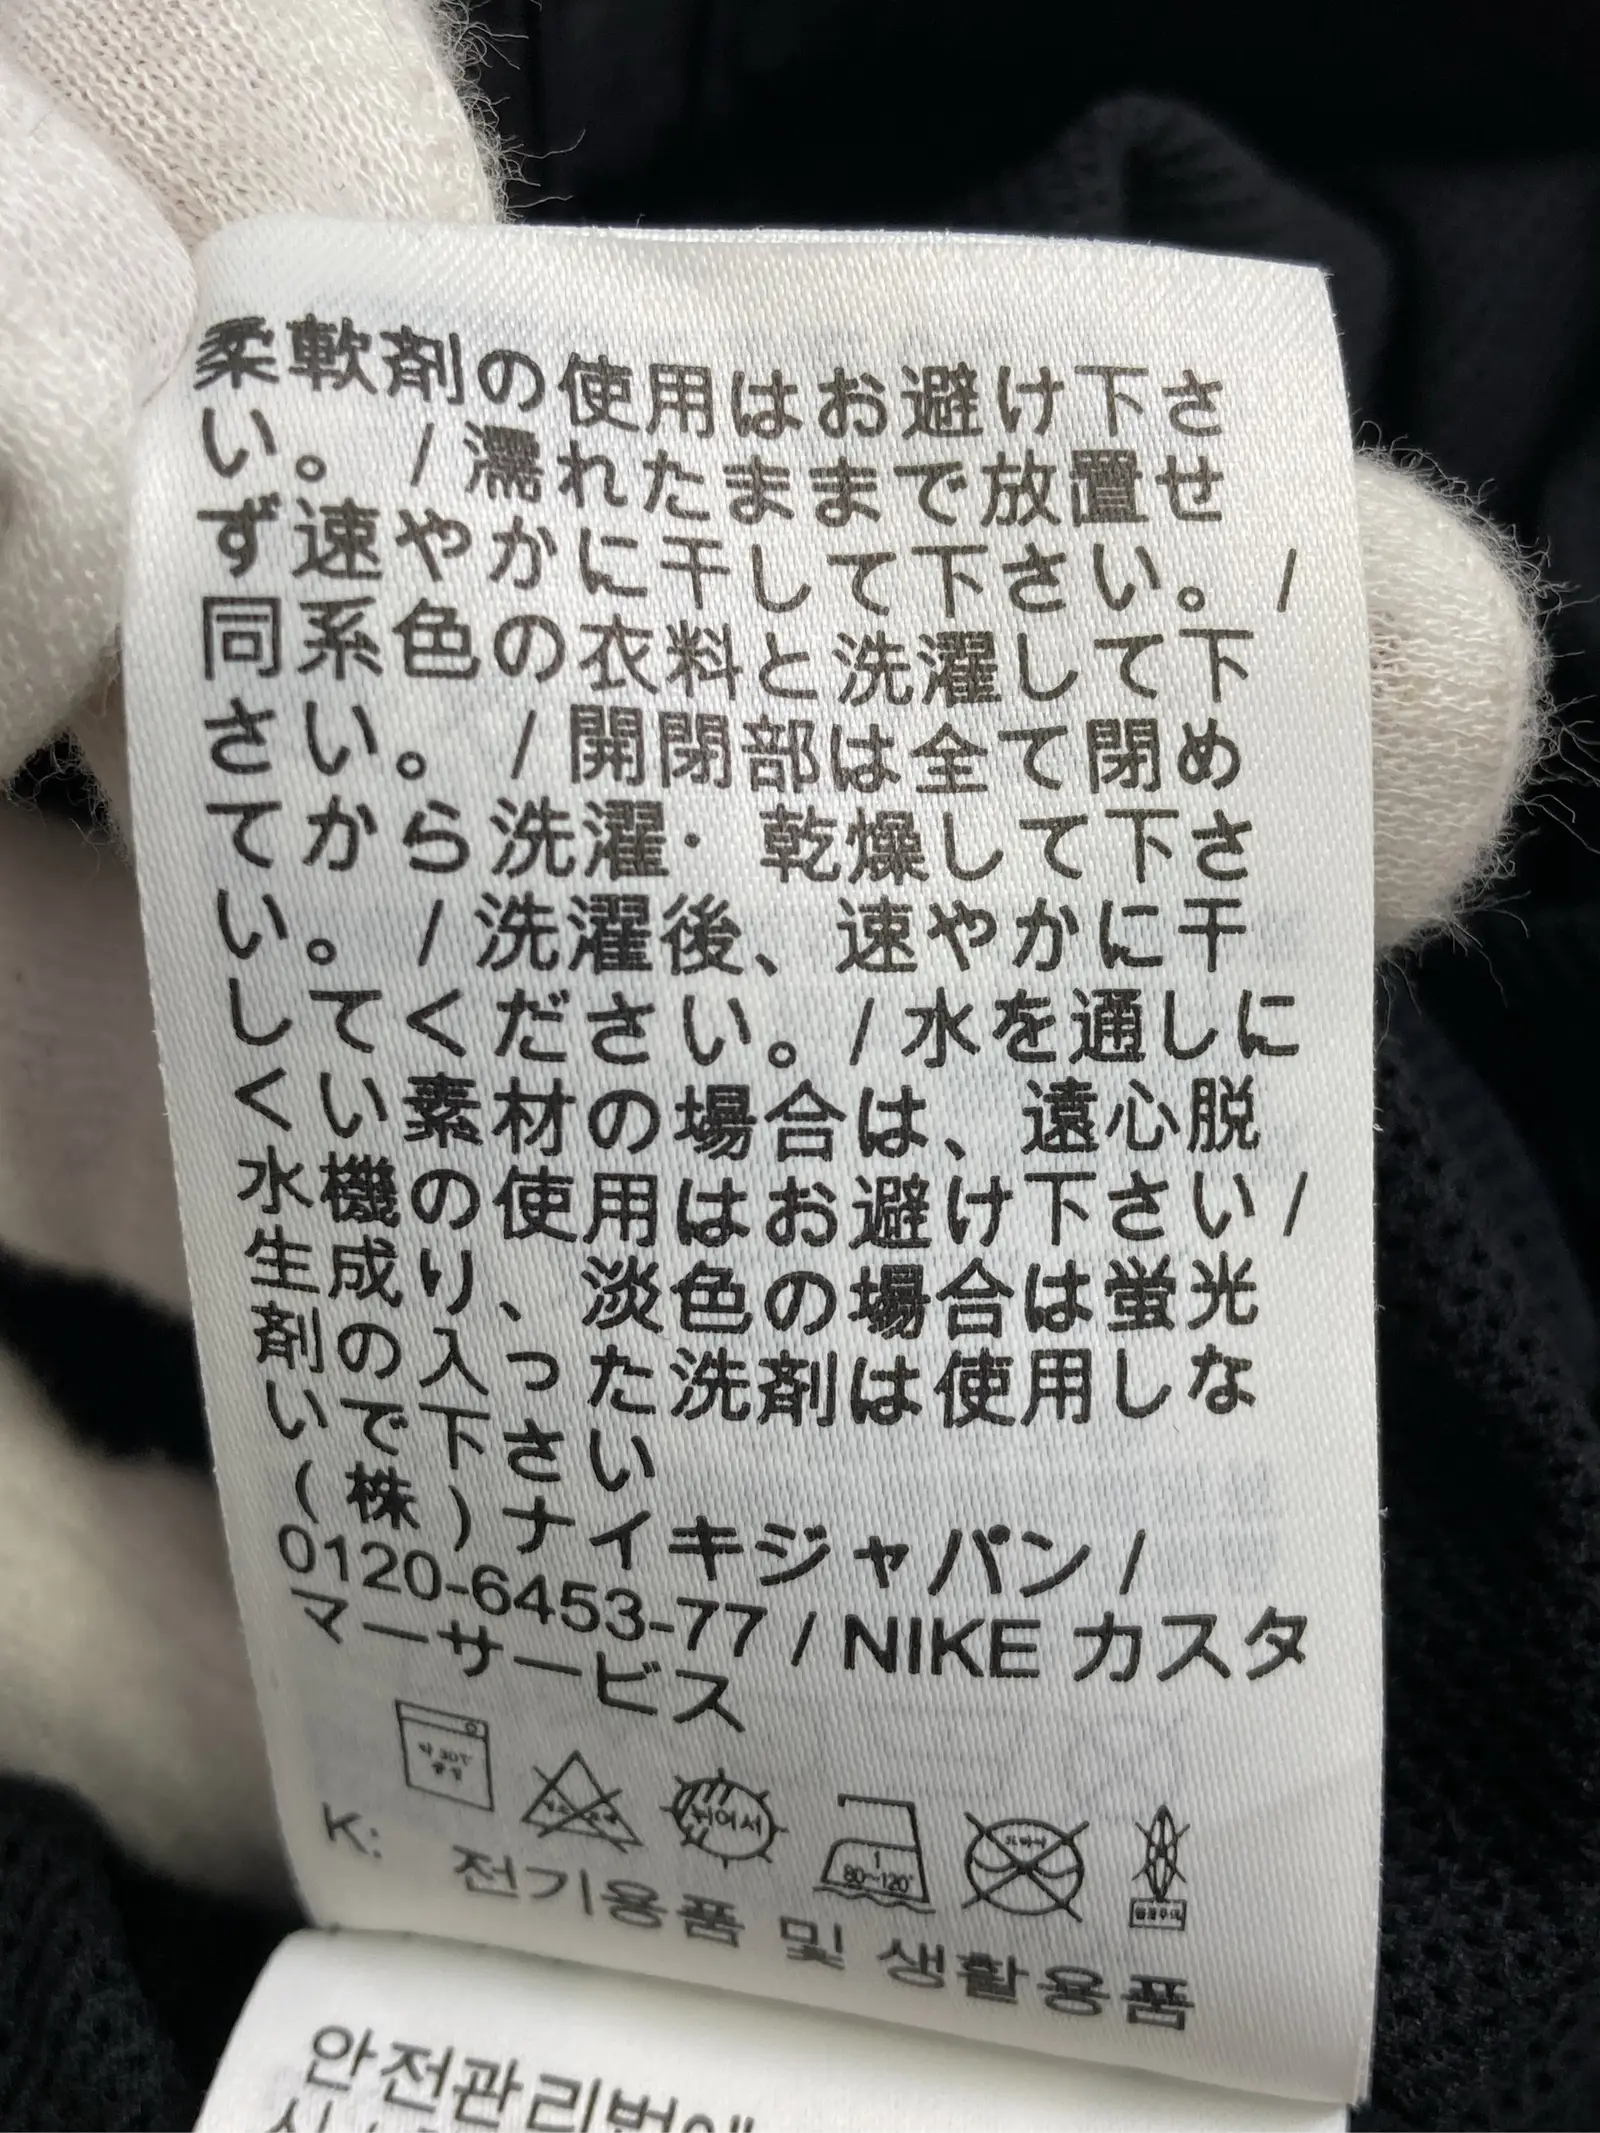 柔軟剤の使用はお避け下さ
い。 / 濡れたままで放置せ
ず速やかに干して下さい。 /
同系色の衣料と洗濯して下
さい。 / 開閉部は全て閉め
てから洗濯・乾燥して下さ
い。 / 洗濯後、速やかに干
してください。/ 水を通しに
くい素材の場合は、遠心脱
水機の使用はお避け下さい /
生成り、淡色の場合は蛍光
剤の入った洗剤は使用しな
いで下さい
(株)ナイキジャパン /
0120-6453-77 / NIKE カスタ
マーサービス
약 30℃
중성
뉘어서
1
80~120℃
드라이
K: 전기용품 및 생활용품
안전관리법에